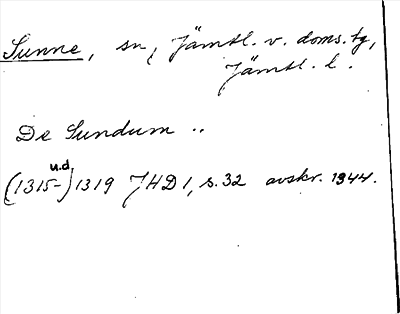 Sunne, sn, Jämtl. v. doms.tg,
Jämtl. l.
De Sundum ..
u.d.
(1315-)1319 JHD 1, s.32 avskr. 1344.